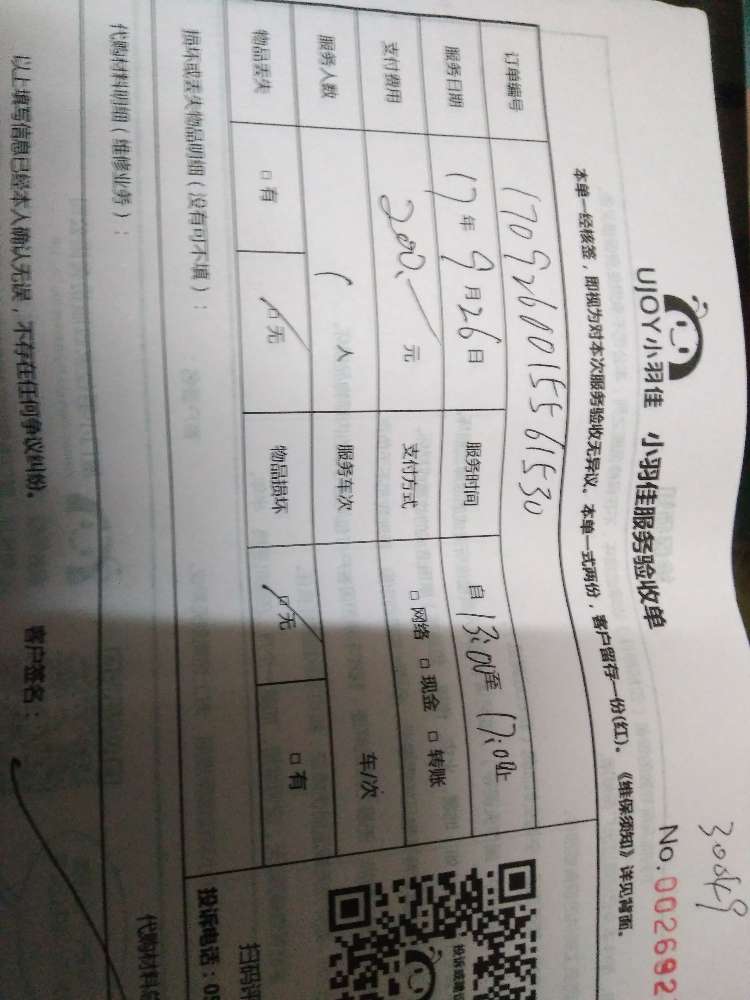 30049
UJOY小羽佳 小羽佳服务验收单
No.002692
本单一经核签，即视为对本次服务验收无异议、本单一式两份，客户留存一份(红)。《维保须知》详见背面。
订单编号 1709260015561530
服务日期 17年9月26日 服务时间 自13:00至17:00止
支付费用 200.一元 支付方式 □网络 □现金 □转账
服务人数 1人 服务车次 车/次
物品丢失 □有 ☑无 物品损坏 ☑无 □有
损坏或丢失物品明细（没有可不填）：
代购材料明细（维修业务）： 代购材料
以上填写信息已经本人确认无误，不存在任何争议纠纷。 客户签名：
投诉或建议
扫码评
投诉电话：05